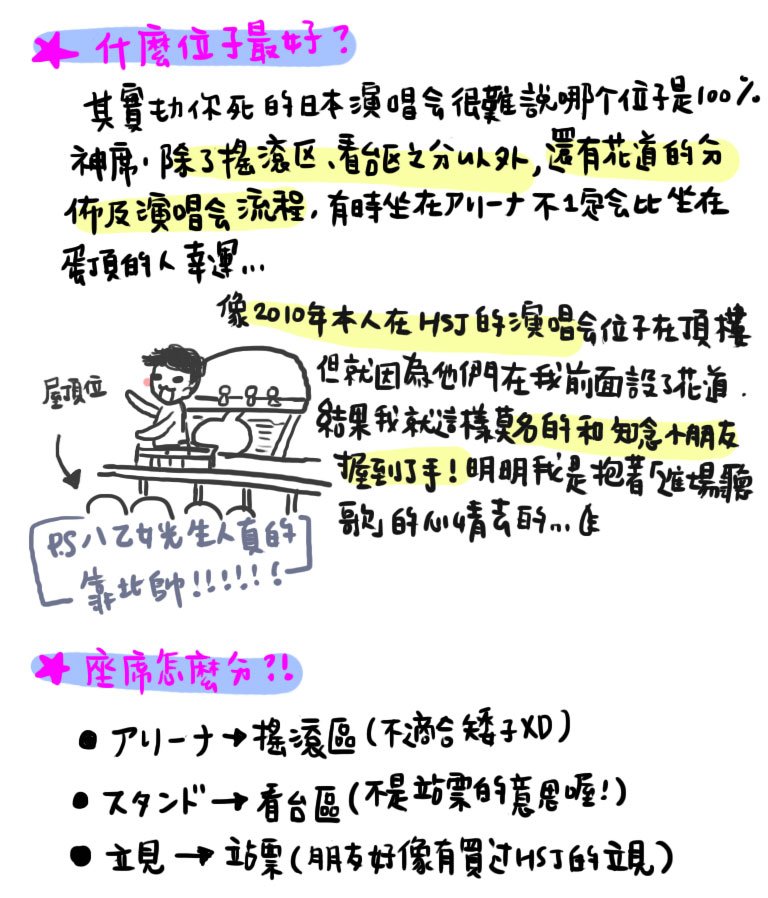 ★ 什麼位子最好?
其實劫你死的日本演唱会很難說哪个位子是100%
神席,除了搖滾区、看台区之分以外,還有花道的分
佈及演唱会流程,有時坐在アリーナ不1定会比坐在
蛋頂的人幸運...
像2010年本人在HSJ的演唱会位子在頂樓
但就因為他們在我前面設了花道.
結果我就這樣莫名的和知念小朋友
握到了手!明明我是抱著「進場聽
歌」的心情去的...
屋頂位
P.S八乙女光生人真的
靠北帥!!!!!!
★ 座席怎麼分?!
● アリーナ→搖滾區(不適合矮子XD)
● スタンド→看台區(不是站票的意思喔!)
● 立見→站票(朋友好像有買过HSJ的立見)